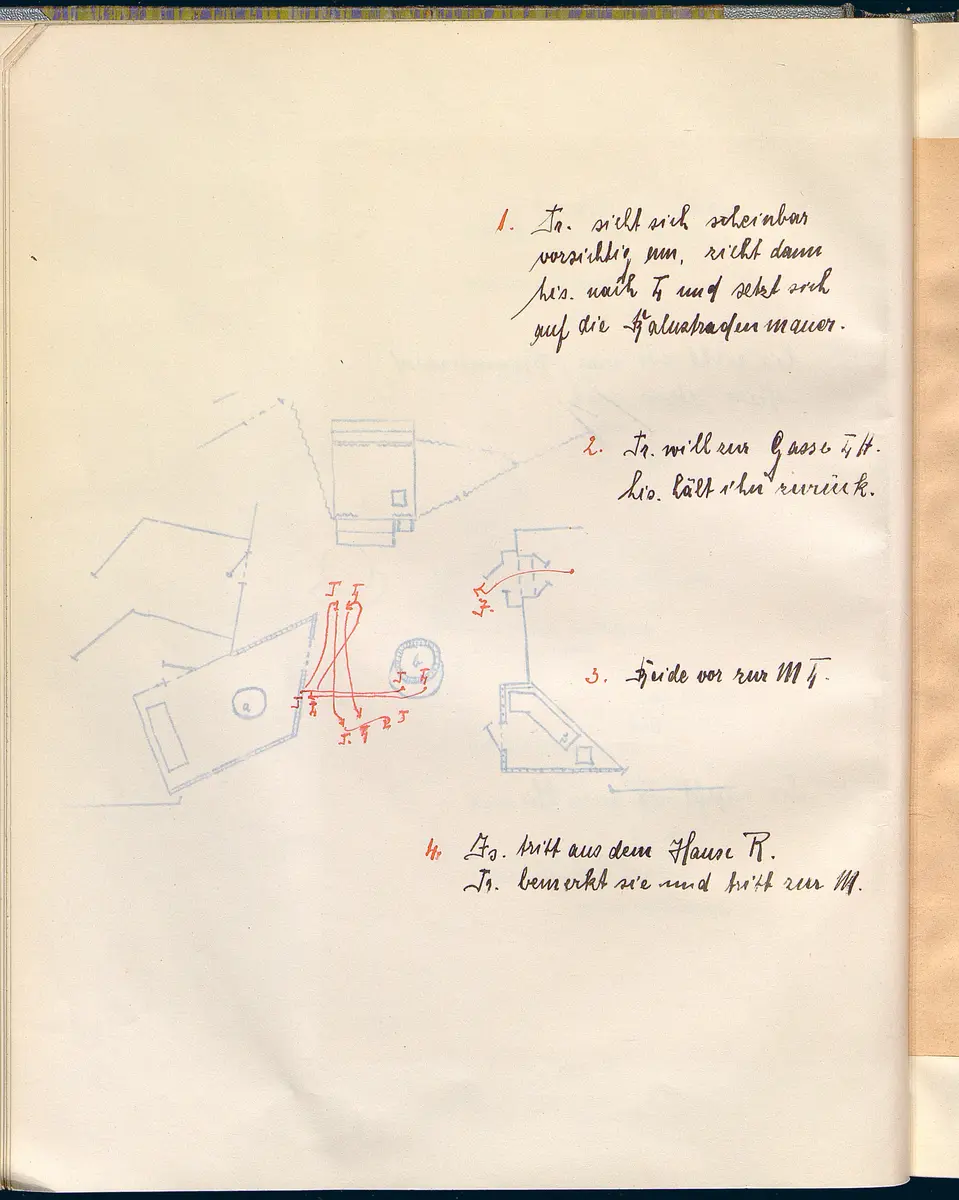 1. Tr. sieht sich scheinbar
vorsichtig um, zieht dann
Lis. nach L und setzt sich
auf die Balustradenmauer.
2. Tr. will zur Gasse L H.
Lis. hält ihn zurück.
3. Beide vor zur M L.
4. Is. tritt aus dem Hause R.
Tr. bemerkt sie und tritt zur M.
a
b